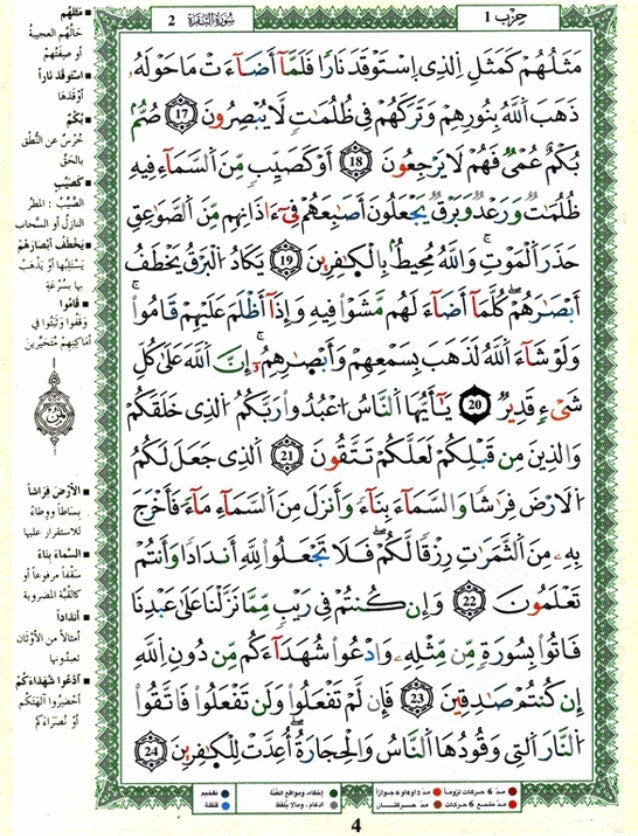 حِزْب 1
سُورَةُ الْبَقَرَة 2
مَثَلُهُمْ كَمَثَلِ اِلذِے اِسْتَوْقَدَ نَاراٗ فَلَمَّآ أَضَآءَتْ مَا حَوْلَهُۥ
ذَهَبَ اَللَّهُ بِنُورِهِمْ وَتَرَكَهُمْ فِے ظُلُمَٰتٖ لَّا يُبْصِرُونَ 17 صُمُّۢ
بُكْمٌ عُمْيٞ فَهُمْ لَا يَرْجِعُونَ 18 أَوْ كَصَيِّبٖ مِّنَ اَلسَّمَآءِ فِيهِ
ظُلُمَٰتٞ وَرَعْدٞ وَبَرْقٞ يَجْعَلُونَ أَصَٰبِعَهُمْ فِےٓ ءَاذَانِهِم مِّنَ اَلصَّوَٰعِقِ
حَذَرَ اَلْمَوْتِۖ وَاللَّهُ مُحِيطُۢ بِالْكَٰفِرِينَ 19 يَكَادُ اُلْبَرْقُ يَخْطَفُ
أَبْصَٰرَهُمْۖ كُلَّمَآ أَضَآءَ لَهُم مَّشَوْاْ فِيهِ وَإِذَآ أَظْلَمَ عَلَيْهِمْ قَامُواْۖ
وَلَوْ شَآءَ اَللَّهُ لَذَهَبَ بِسَمْعِهِمْ وَأَبْصٰ۪رِهِمُۥٓۖ إِنَّ اَللَّهَ عَلَىٰ كُلِّ
شَےْءٖ قَدِيرٞ 20 يَٰٓأَيُّهَا اَلنَّاسُ اُعْبُدُواْ رَبَّكُمُ اُلذِے خَلَقَكُمْ
وَالذِينَ مِن قَبْلِكُمْ لَعَلَّكُمْ تَتَّقُونَ 21 اَلذِے جَعَلَ لَكُمُ
اُلَارْضَ فِرَٰشاٗ وَالسَّمَآءَ بِنَآءٗ وَأَنزَلَ مِنَ اَلسَّمَآءِ مَآءٗ فَأَخْرَجَ
بِهِۦ مِنَ اَلثَّمَرَٰتِ رِزْقاٗ لَّكُمْۖ فَلَا تَجْعَلُواْ لِلهِ أَندَاداٗ وَأَنتُمْ
تَعْلَمُونَ 22 وَإِن كُنتُمْ فِے رَيْبٖ مِّمَّا نَزَّلْنَا عَلَىٰ عَبْدِنَا
فَاتُواْ بِسُورَةٖ مِّن مِّثْلِهِۦ وَادْعُواْ شُهَدَآءَكُم مِّن دُونِ اِللَّهِ
إِن كُنتُمْ صَٰدِقِينَ 23 فَإِن لَّمْ تَفْعَلُواْ وَلَن تَفْعَلُواْ فَاتَّقُواْ
اُلنَّارَ اَلتِے وَقُودُهَا اَلنَّاسُ وَالْحِجَارَةُۖ أُعِدَّتْ لِلْكَٰفِرِينَ 24
■ مَثَلُهُمْ
حَالُهُم العجيبةُ
أو صِفَتُهُمْ
■ اسْتَوْقَدَ نَاراً
أَوْقَدَهَا
■ بُكْمٌ
خُرْسٌ عن النُّطْقِ
بالحَقِّ
■ كَصَيِّبٍ
الصَّيِّبُ : المطرُ
النازلُ أو السَّحاب
■ يَخْطَفُ أَبْصَارَهُمْ
يَسْتَلِبُها أوْ يَذْهَبُ
بها بِسُرْعَةٍ
■ قَامُوا
وَقَفُوا وثَبَتُوا في
أَمَاكِنِهِمْ مُتَحَيِّرينَ
■ الأَرْضَ فِرَاشاً
بِسَاطاً وَوِطاءً
للاستقرار عليها
■ السَّماءَ بِنَاءً
سَقْفاً مرفوعاً أو
كالقُبَّةِ المضروبة
■ أنداداً
أمثالاً من الأوْثان
تعبدُونها
■ ادْعُوا شُهَدَاءَكُمْ
أَحْضِرُوا آلِهَتَكُم
أوْ نُصَرَاءَكُمْ
مدّ 6 حركات لزوماً
مدّ 2 أو 4 أو 6 جوازاً
إخفاء، ومواقع الغُنَّة
تفخيم
مدّ مشبع 6 حركات
مدّ حركتان
ادغام ، وما لا يُلفَظ
قلقلة
4